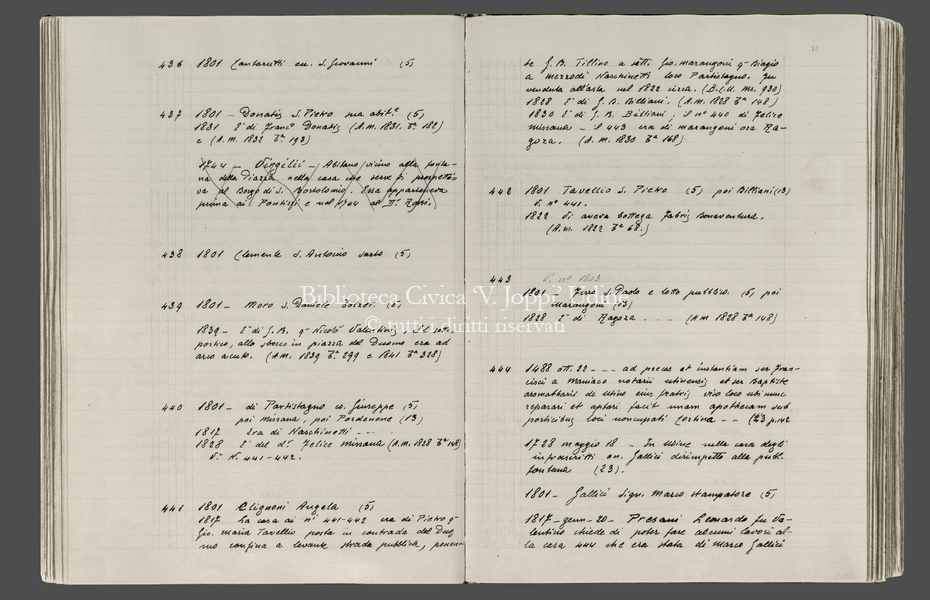 436 1801 Cantarutti eu. S. Giovanni (5)
437 1801 - Donatis S. Pietro sua abit.e (5)
1831 È di Franc.o Donatis (A.M. 1831. T.a 182)
e (A.M. 1832 T.a 193)
1744 - Virgilii - Abitano vicino alla fonta-
na della Piazza nella casa che serve di prospetti-
va al Borgo di S. Bortolomio. Essa apparteneva
prima ai Pontini e nel 1704 ad
438 1801 Clemente S. Antonio sarto (5)
439 1801 - Moro S. Daniele (5)
1839 - È di G.B. q.m Nicolò Valentinis,
portico, allo sbocco in piazza del Duomo era ad
arco acuto. (A.M. 1839 T.a 299 e 1841 T.a 328)
440 1801 - di Partistagno co. Giuseppe (5)
poi Missana, poi Pordenone (13)
1817 Era di Narchinetti - -
1828 È del d.r Felice Missana (A.M. 1828 T.a 148)
V. N. 441-442.
441 1801 Clignoni Angela (5)
1817 La casa ai n.i 441-442 era di Pietro q.
Gio. Maria Tavellio posta in contrada del Duo-
mo confina a levante strada pubblica, ponen-
te G.B. Tillino a sett. Gio. Marangoni q.m Biagio
a mezzodì Narchinetti loco Partistagno. Fu
venduta all'asta nel 1822 circa. (B.C.U. Ms. 930)
1828 È di G.B. Billiani. (A.M. 1828 T.a 148)
1830 È di G.B. Billiani, il n.o 440 di Felice
Missana - il 443 era di Marangoni ora Ra-
goza. (A.M. 1830 T.a 168)
442 1801 Tavellio S. Pietro (5) poi Billiani (13)
V. n.o 441.
1822 Vi aveva bottega Fabris Bonaventura.
(A.M. 1822 T.a 68.)
443 V. n.o 1833
1801 Zurro S. Paolo e lotto pubblico. (5) poi
Marangoni (13)
1828 È di Ragoza . . . - (A.M 1828 T.a 148)
444 1488 ott. 22 - - - ad preces et instantiam ser Fran-
cisci a Maniaco notarii utinensis et ser Baptiste
aromattarii de Utino eius fratris viso loco ubi nunc
reparari et aptari facit unam apothecam sub
porticibus loci noncupati Cortina - - (23 p. 142
1728 maggio 18 - In Udine nella casa degli
infrascritti on. Gallici dirimpetto alla publ.
fontana (23).
1801 - Gallici Sign. Marco stampatore (5)
1817 - genn. 20 - Presani Leonardo fu Va-
lentino chiede di poter fare alcuni lavori al-
la casa 444 che era stata di Marco Gallici
Biblioteca Civica 'V. Joppi' Udine
© tutti i diritti riservati